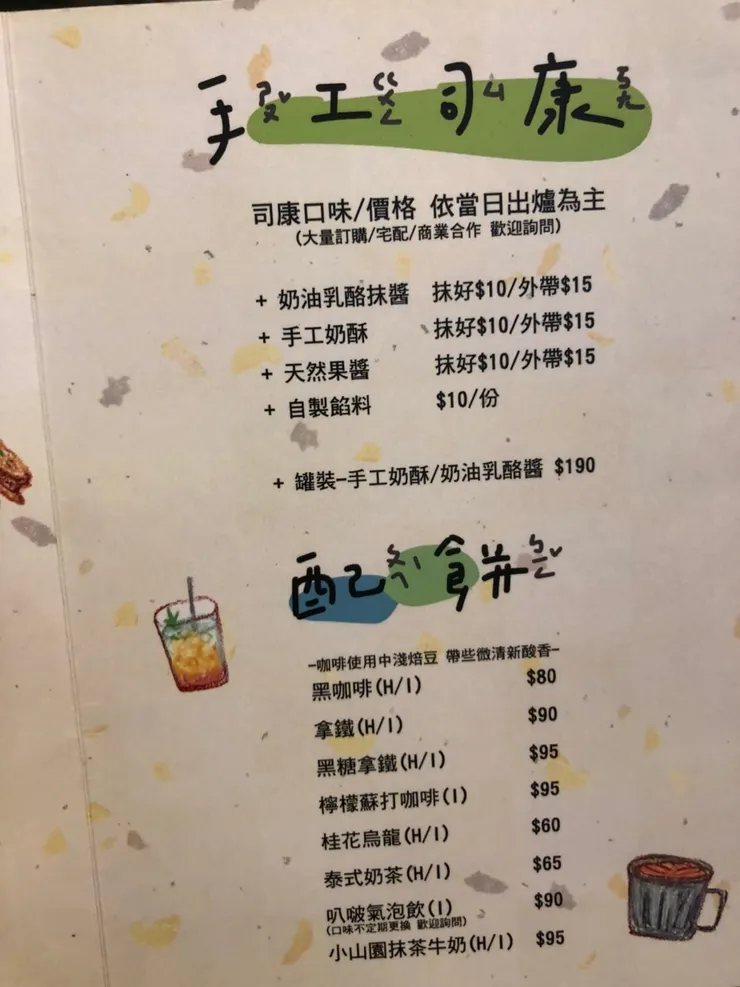 手ㄕㄡˇ工ㄍㄨㄥ司ㄙ康ㄎㄤ
司康口味/價格 依當日出爐為主
(大量訂購/宅配/商業合作 歡迎詢問)
+ 奶油乳酪抹醬 抹好$10/外帶$15
+ 手工奶酥 抹好$10/外帶$15
+ 天然果醬 抹好$10/外帶$15
+ 自製餡料 $10/份
+ 罐裝-手工奶酥/奶油乳酪醬 $190
配ㄆㄟˋ餅ㄅㄧㄥˇ
-咖啡使用中淺焙豆 帶些微清新酸香-
黑咖啡(H/I) $80
拿鐵(H/I) $90
黑糖拿鐵(H/I) $95
檸檬蘇打咖啡(I) $95
桂花烏龍(H/I) $60
泰式奶茶(H/I) $65
叭啵氣泡飲(I) $90
(口味不定期更換 歡迎詢問)
小山園抹茶牛奶(H/I) $95